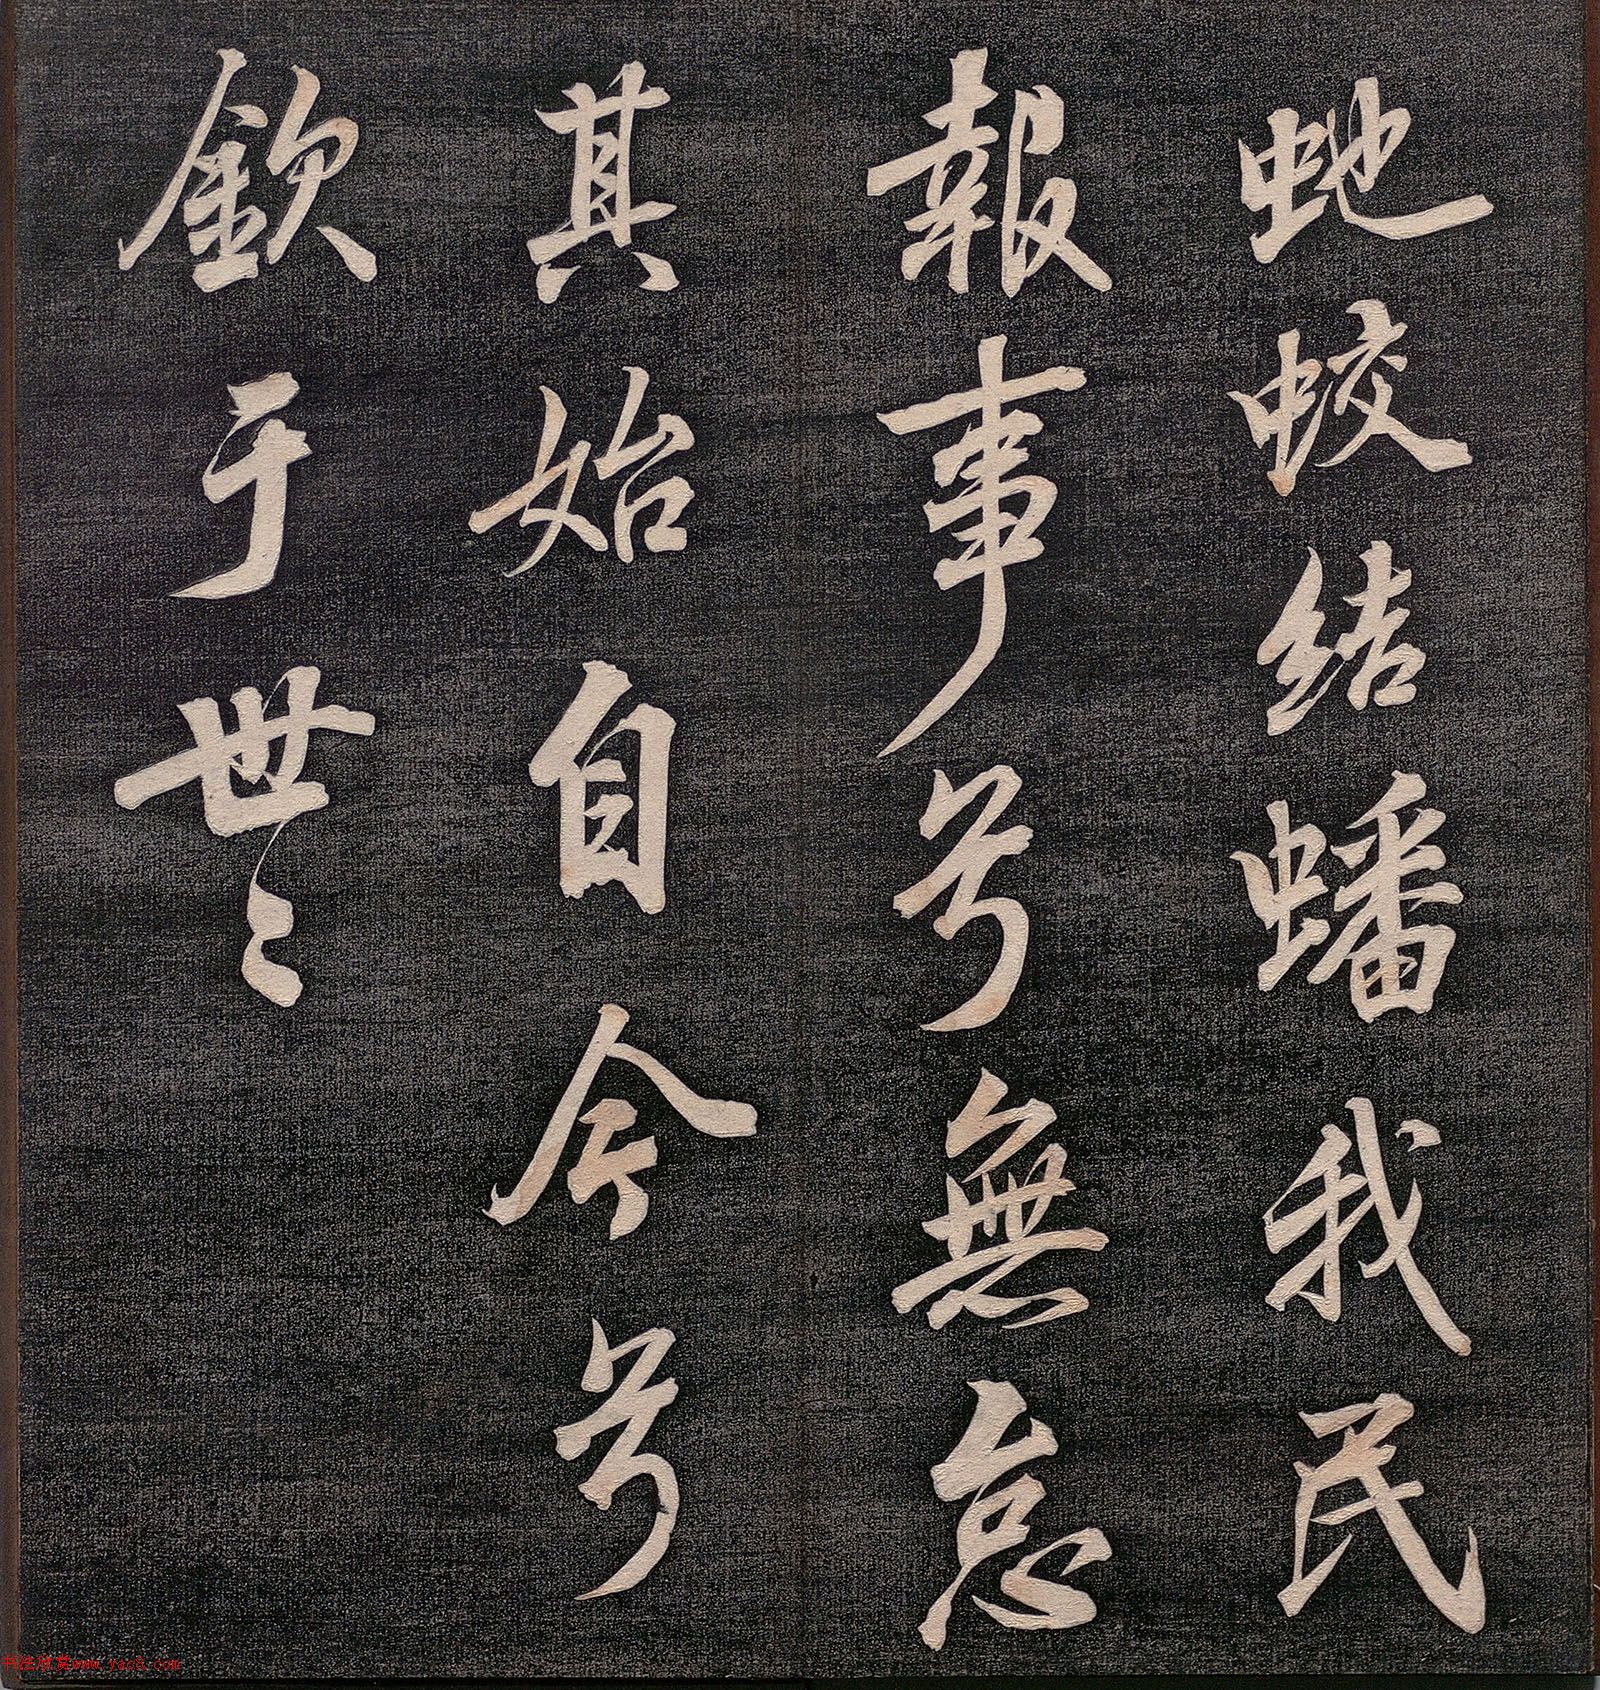 虵蛟結蟠我民
報事兮無怠
其始自今兮
欽于世〻
书法欣赏www.yac8.com